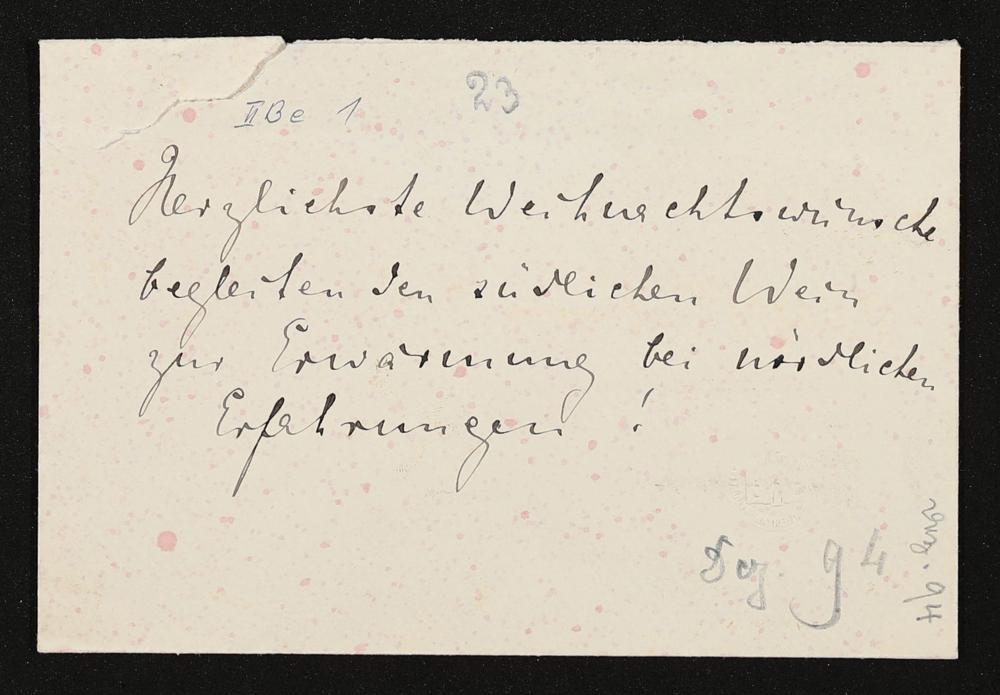 II Be 1
23
Herzlichste Weihnachtswünsche
begleiten den südlichen Wein
zur Erwärmung bei nördlichen
Erfahrungen !
Dez. 94